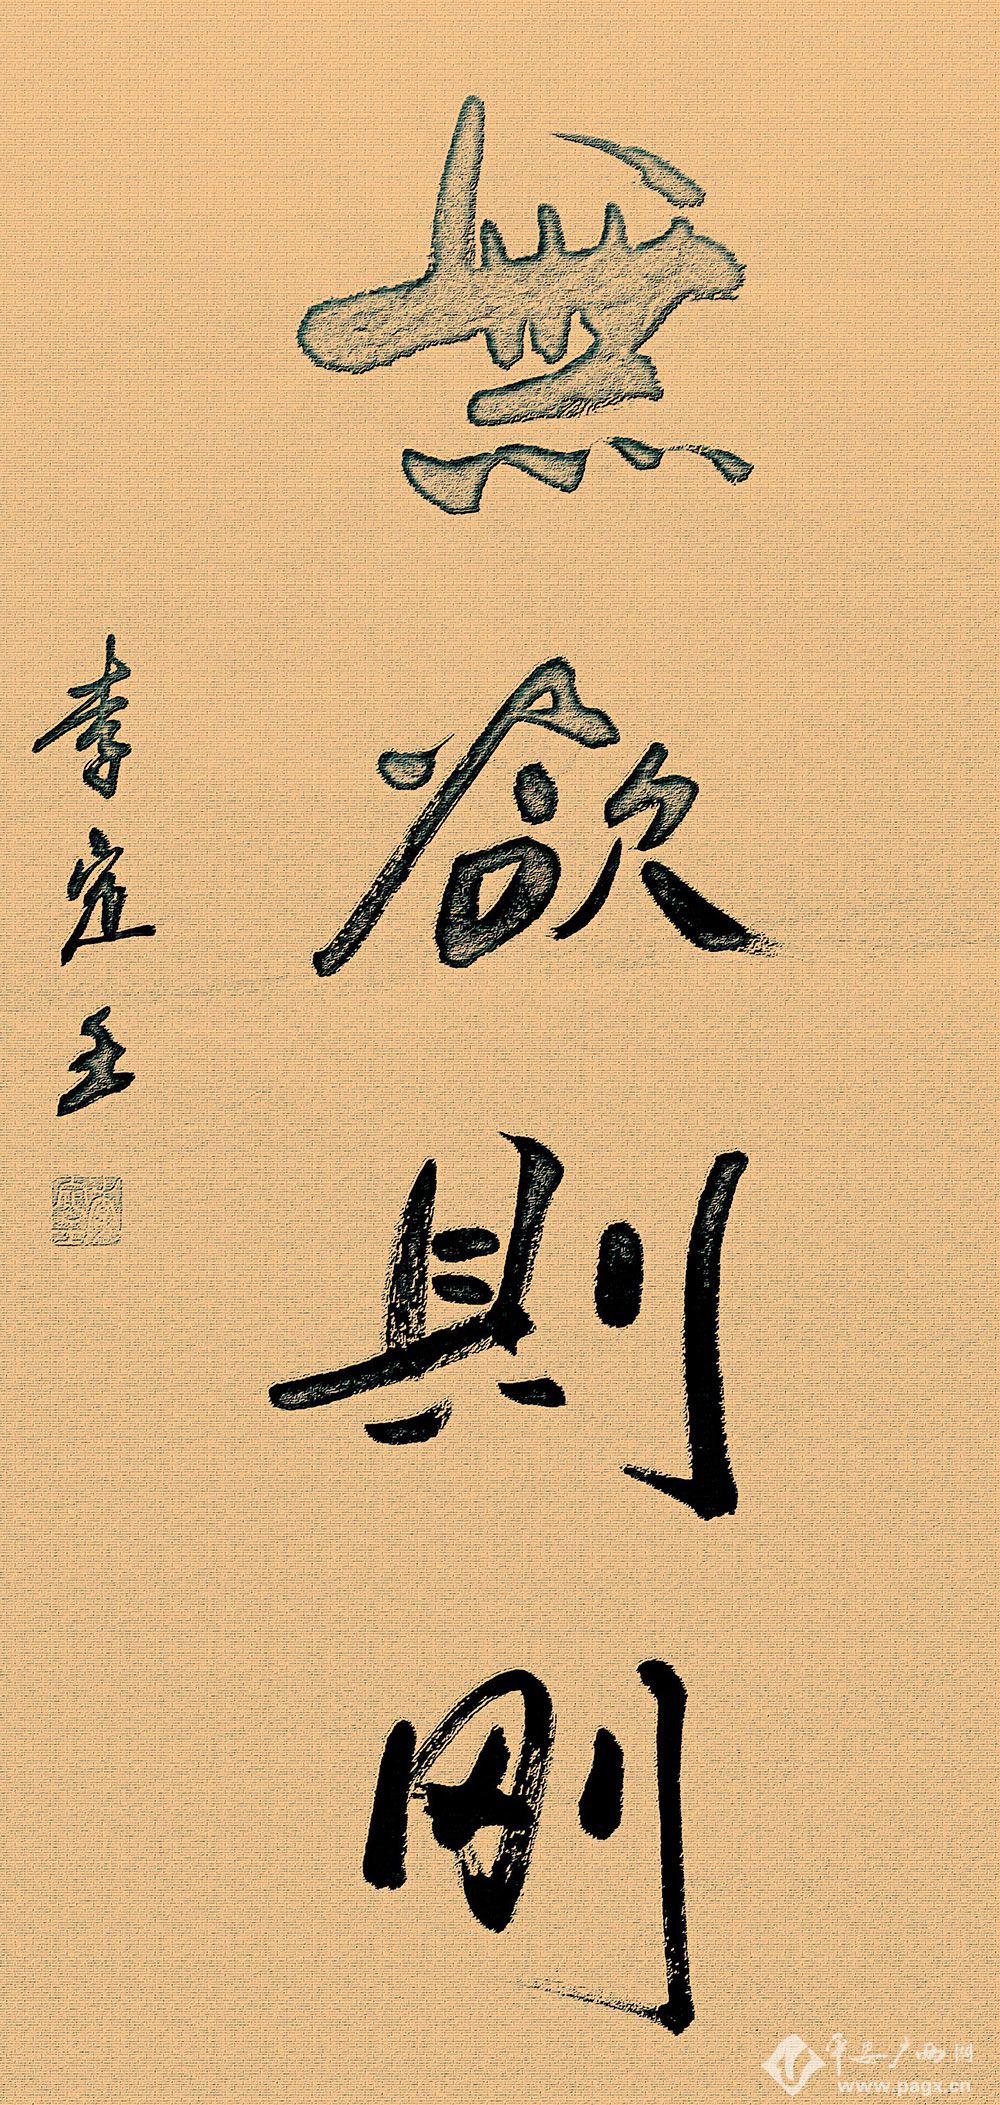 無欲則剛
李定王
平安广西网
www.pagx.cn